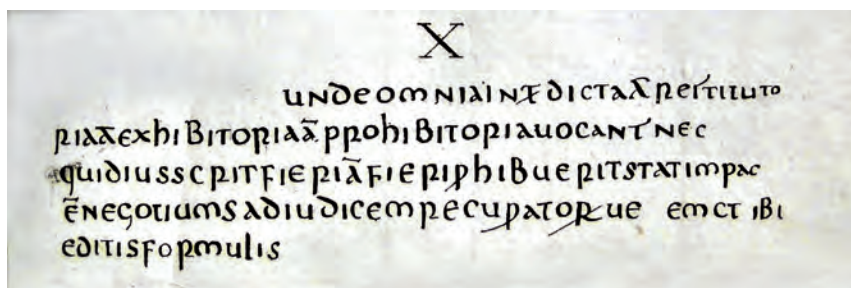 X
undeomniaint̄dictaārestituto
riaāexhibitoriaāprohibitoriauocant'nec
quidiusscritfieriāfieriꝓhibueritstatimpac
ēnegotiumsadiudicemrecupatorue emct ibi
editisformulis